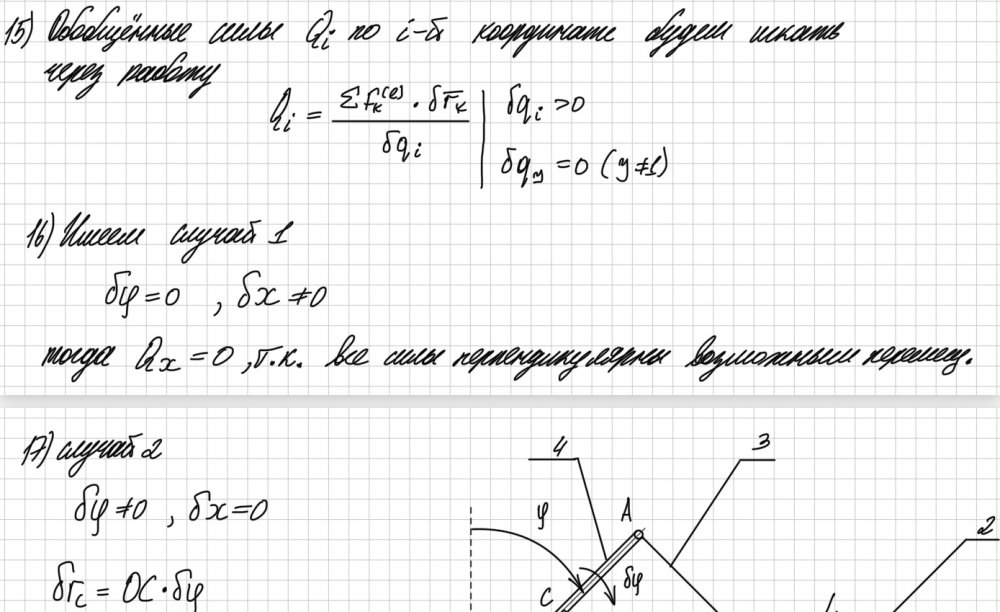 15) Обобщённые силы Qᵢ по i-й координате будем искать
через работу
Qᵢ = Σ Fₖ⁽ᵉ⁾ · δr̄ₖ / δqᵢ | δqᵢ >0
δqᵧ =0 (y≠1)
16) Имеем случай 1
δφ=0 , δx ≠0
тогда Qx =0 , т.к. все силы перпендикулярны возможным перемещ.
17) случай 2
δφ≠0 , δx=0
δr_c = OC·δφ
4
3
2
φ
A
δφ
C